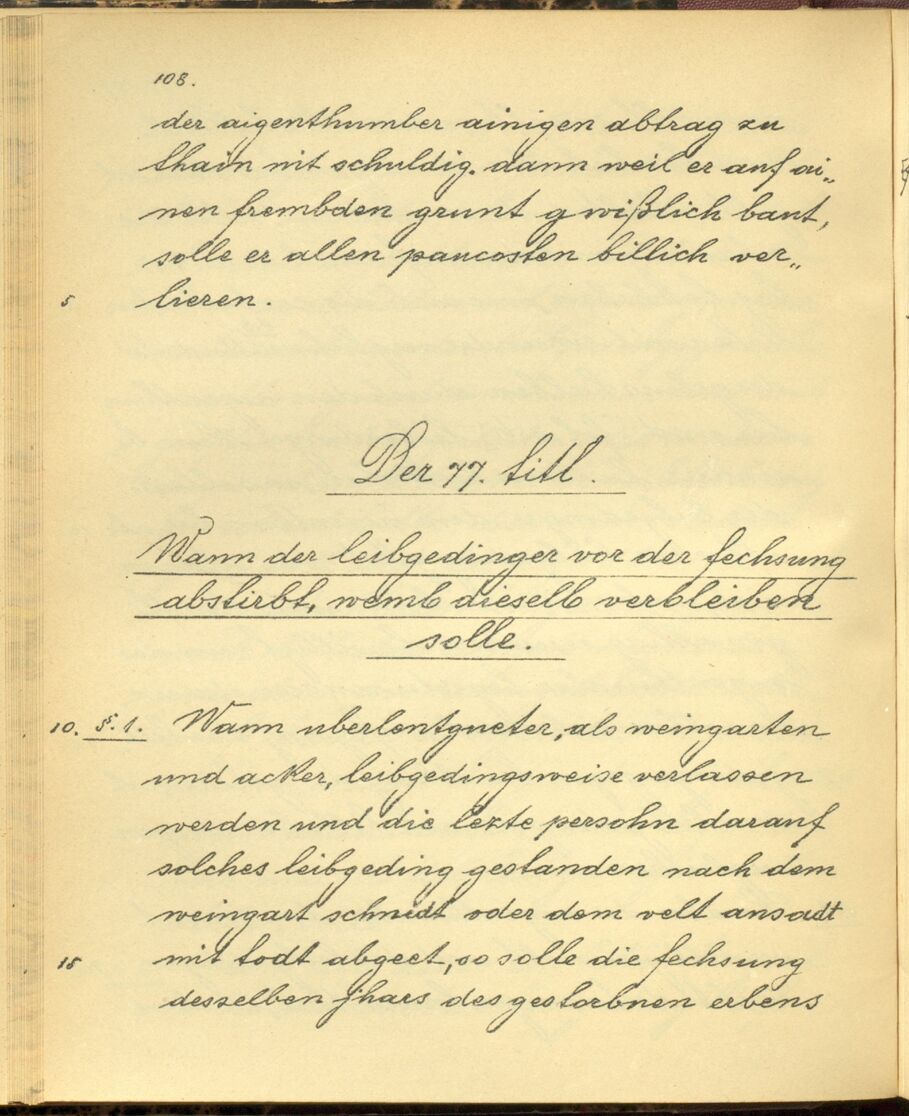 108.
der aigenthumber ainigen abtrag zu
thain nit schuldig. dann weil er auf ai„
nen frembden grunt gwißlich baut,
solle er allen paucosten billich ver„
5 lieren.
Der 77. titl.
Wann der leibgedinger vor der fechsung
abstirbt, wemb dieselb verbleiben
solle.
10. §. 1. Wann uberlentgueter, als weingarten
und acker, leibgedingsweise verlassen
werden und die lezte persohn darauf
solches leibgeding gestanden nach dem
weingart schnidt oder dem velt ansadt
15 mit todt abgeet, so solle die fechsung
desselben jhars des gestorbnen erbens